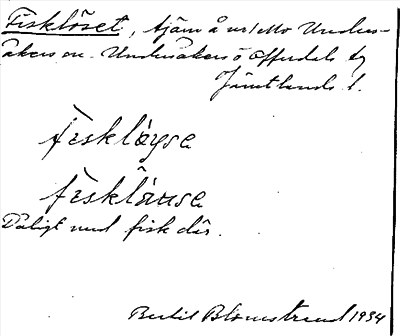 Fisklöset, tjärn å ur/Mo Unders-
åkers sn. Undersåkers o Offerdals tg
Jämtlands l.
fisklöyse
fisklåuse
Dåligt med fisk där.
Bertil Blomstrand 1934